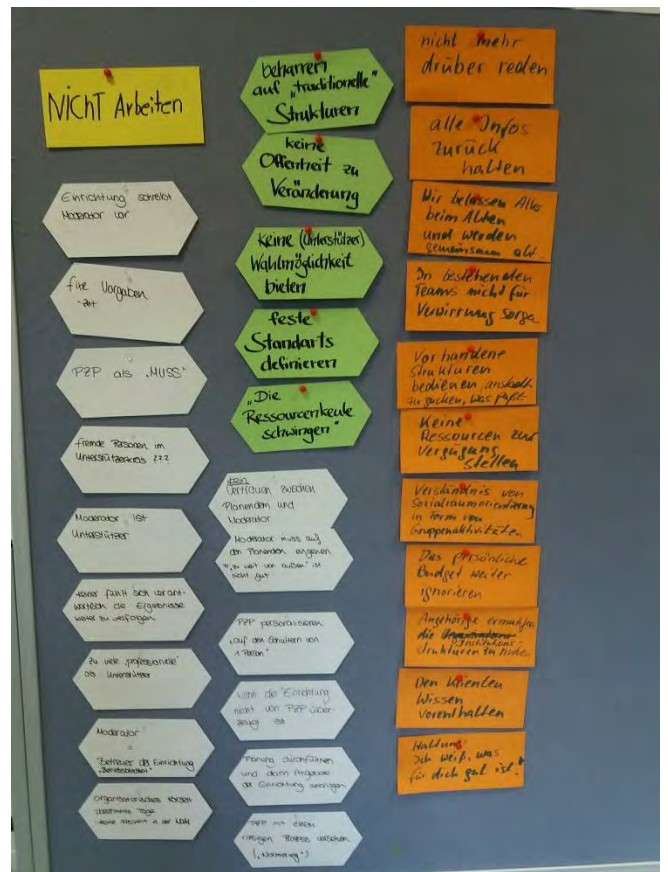 NiCHT Arbeiten
Einrichtung schreibt
Moderator vor
fixe Vorgaben
- Zeit
PZP als „MUSS"
fremde Personen im
Unterstützerkreis ???
Moderator ist
Unterstützer
Keiner fühlt sich verant-
wortlich die Ergebnisse
weiter zu verfolgen
Zu viele „professionelle"
als Unterstützer
Moderator
=
Betreuer der Einrichtung
„Betriebsblindheit"
organisatorisches
bestimmte Tage
keine in der Wahl
beharren
auf „traditionelle"
Strukturen
keine
Offenheit zu
Veränderung
Keine (Unterstützer)
Wahlmöglichkeit
bieten
feste
Standarts
definieren
„Die
Ressourcenkeule
schwingen"
kein
Vertrauen zwischen
Planenden und
Moderator
Moderator muss auf
den Planenden eingehen
„zu weit von außen" ist
nicht gut
PZP personalisieren
„auf den Schultern von
1 Person"
wenn die Einrichtung
nicht von PZP über-
zeugt ist
Planung durchführen
und dann Angebote
der Einrichtung
PZP mit einem
riesigen Prozess versehen
(„Normierung")
nicht mehr
drüber reden
alle Infos
zurück
halten
Wir belassen Alles
beim Alten
und werden
gemeinsam alt.
In bestehenden
Teams nicht für
Verwirrung sorgen
Vorhandene
Strukturen
bedienen, anstatt
zu gucken, was paßt
Keine
Ressourcen zur
Verfügung
stellen
Verständnis von
Sozialraumorientierung
in Form von
Gruppenaktivitäten
Das persönliche
Budget weiter
ignorieren
Angehörige
die Institutions-
strukturen zu
Den Klienten
Wissen
vorenthalten
Haltung
Ich weiß, was
für dich gut ist!